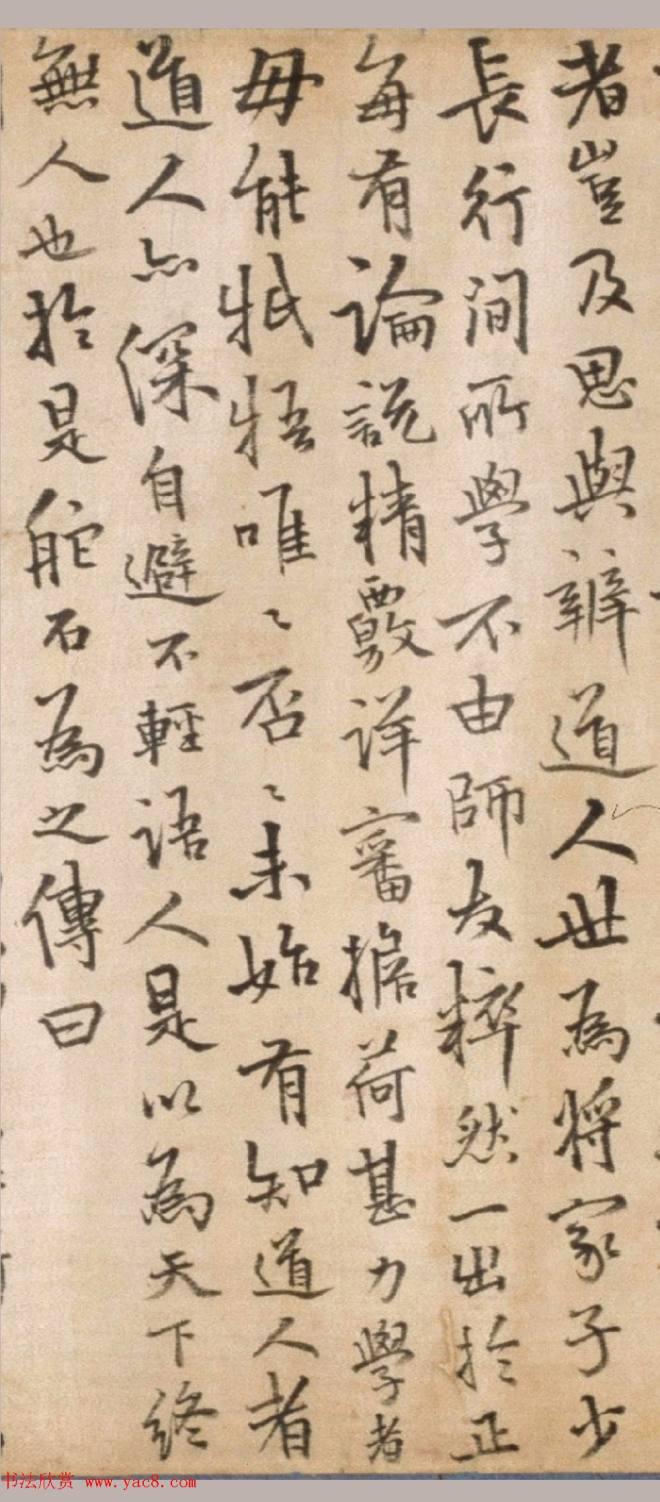 者豈及思與辯道人世為將家子少
長行間所學不由師友粹然一出於正
每有論說精覈詳審擔荷甚力學者
毋能牴牾唯〻否〻未始有知道人者
道人亦深自避不輕語人是以為天下終
無人也於是舵石為之傳曰
书法欣赏 www.yac8.com